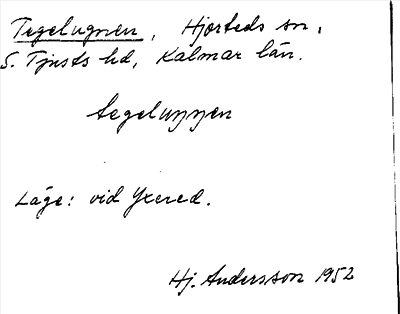 Tegelugnen, Hjorteds sn,
S. Tjusts hd, Kalmar län.
tegeluŋŋen
Läge: vid Yxered.
Hj. Andersson 1952